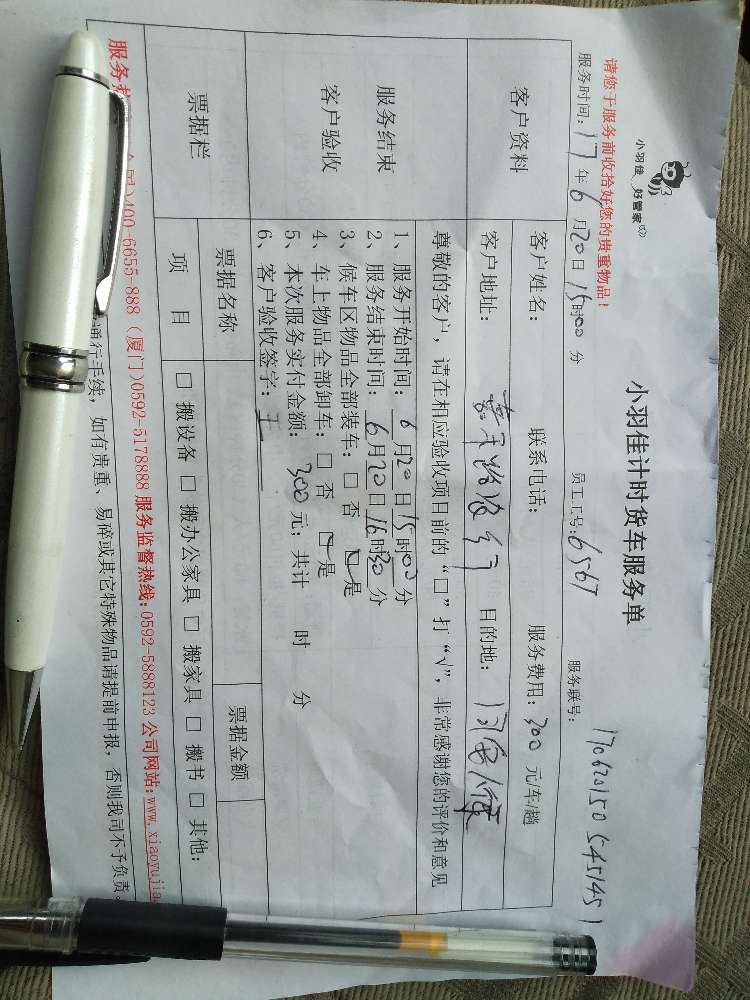 小羽佳 好管家
小羽佳计时货车服务单
请您于服务前收拾好您的贵重物品！
服务时间：17年6月20日15时00分 员工工号：6567 服务联号：170620150545145
客户资料
客户姓名： 联系电话： 服务费用：300元/车/趟
客户地址： 目的地：
服务结束
客户验收
尊敬的客户，请在相应验收项目前的“口”打“√”，非常感谢您的评价和意见
1、服务开始时间：6月20日15时00分
2、服务结束时间：6月20日16时30分
3、候车区物品全部装车：□ 否 □ 是
4、车上物品全部卸车：□ 否 □ 是
5、本次服务实付金额：300元；共计 时 分
6、客户验收签字：王
票据栏
票据名称 票据金额
项 目 □ 搬设备 □ 搬办公家具 □ 搬家具 □ 搬书 □ 其他：
通行手续，如有贵重、易碎或其它特殊物品请提前申报，否则我司不予负责。
服务 400-6655-888（厦门）0592-5178888 服务监督热线：0592-5888123 公司网站：www.xiaoyujia